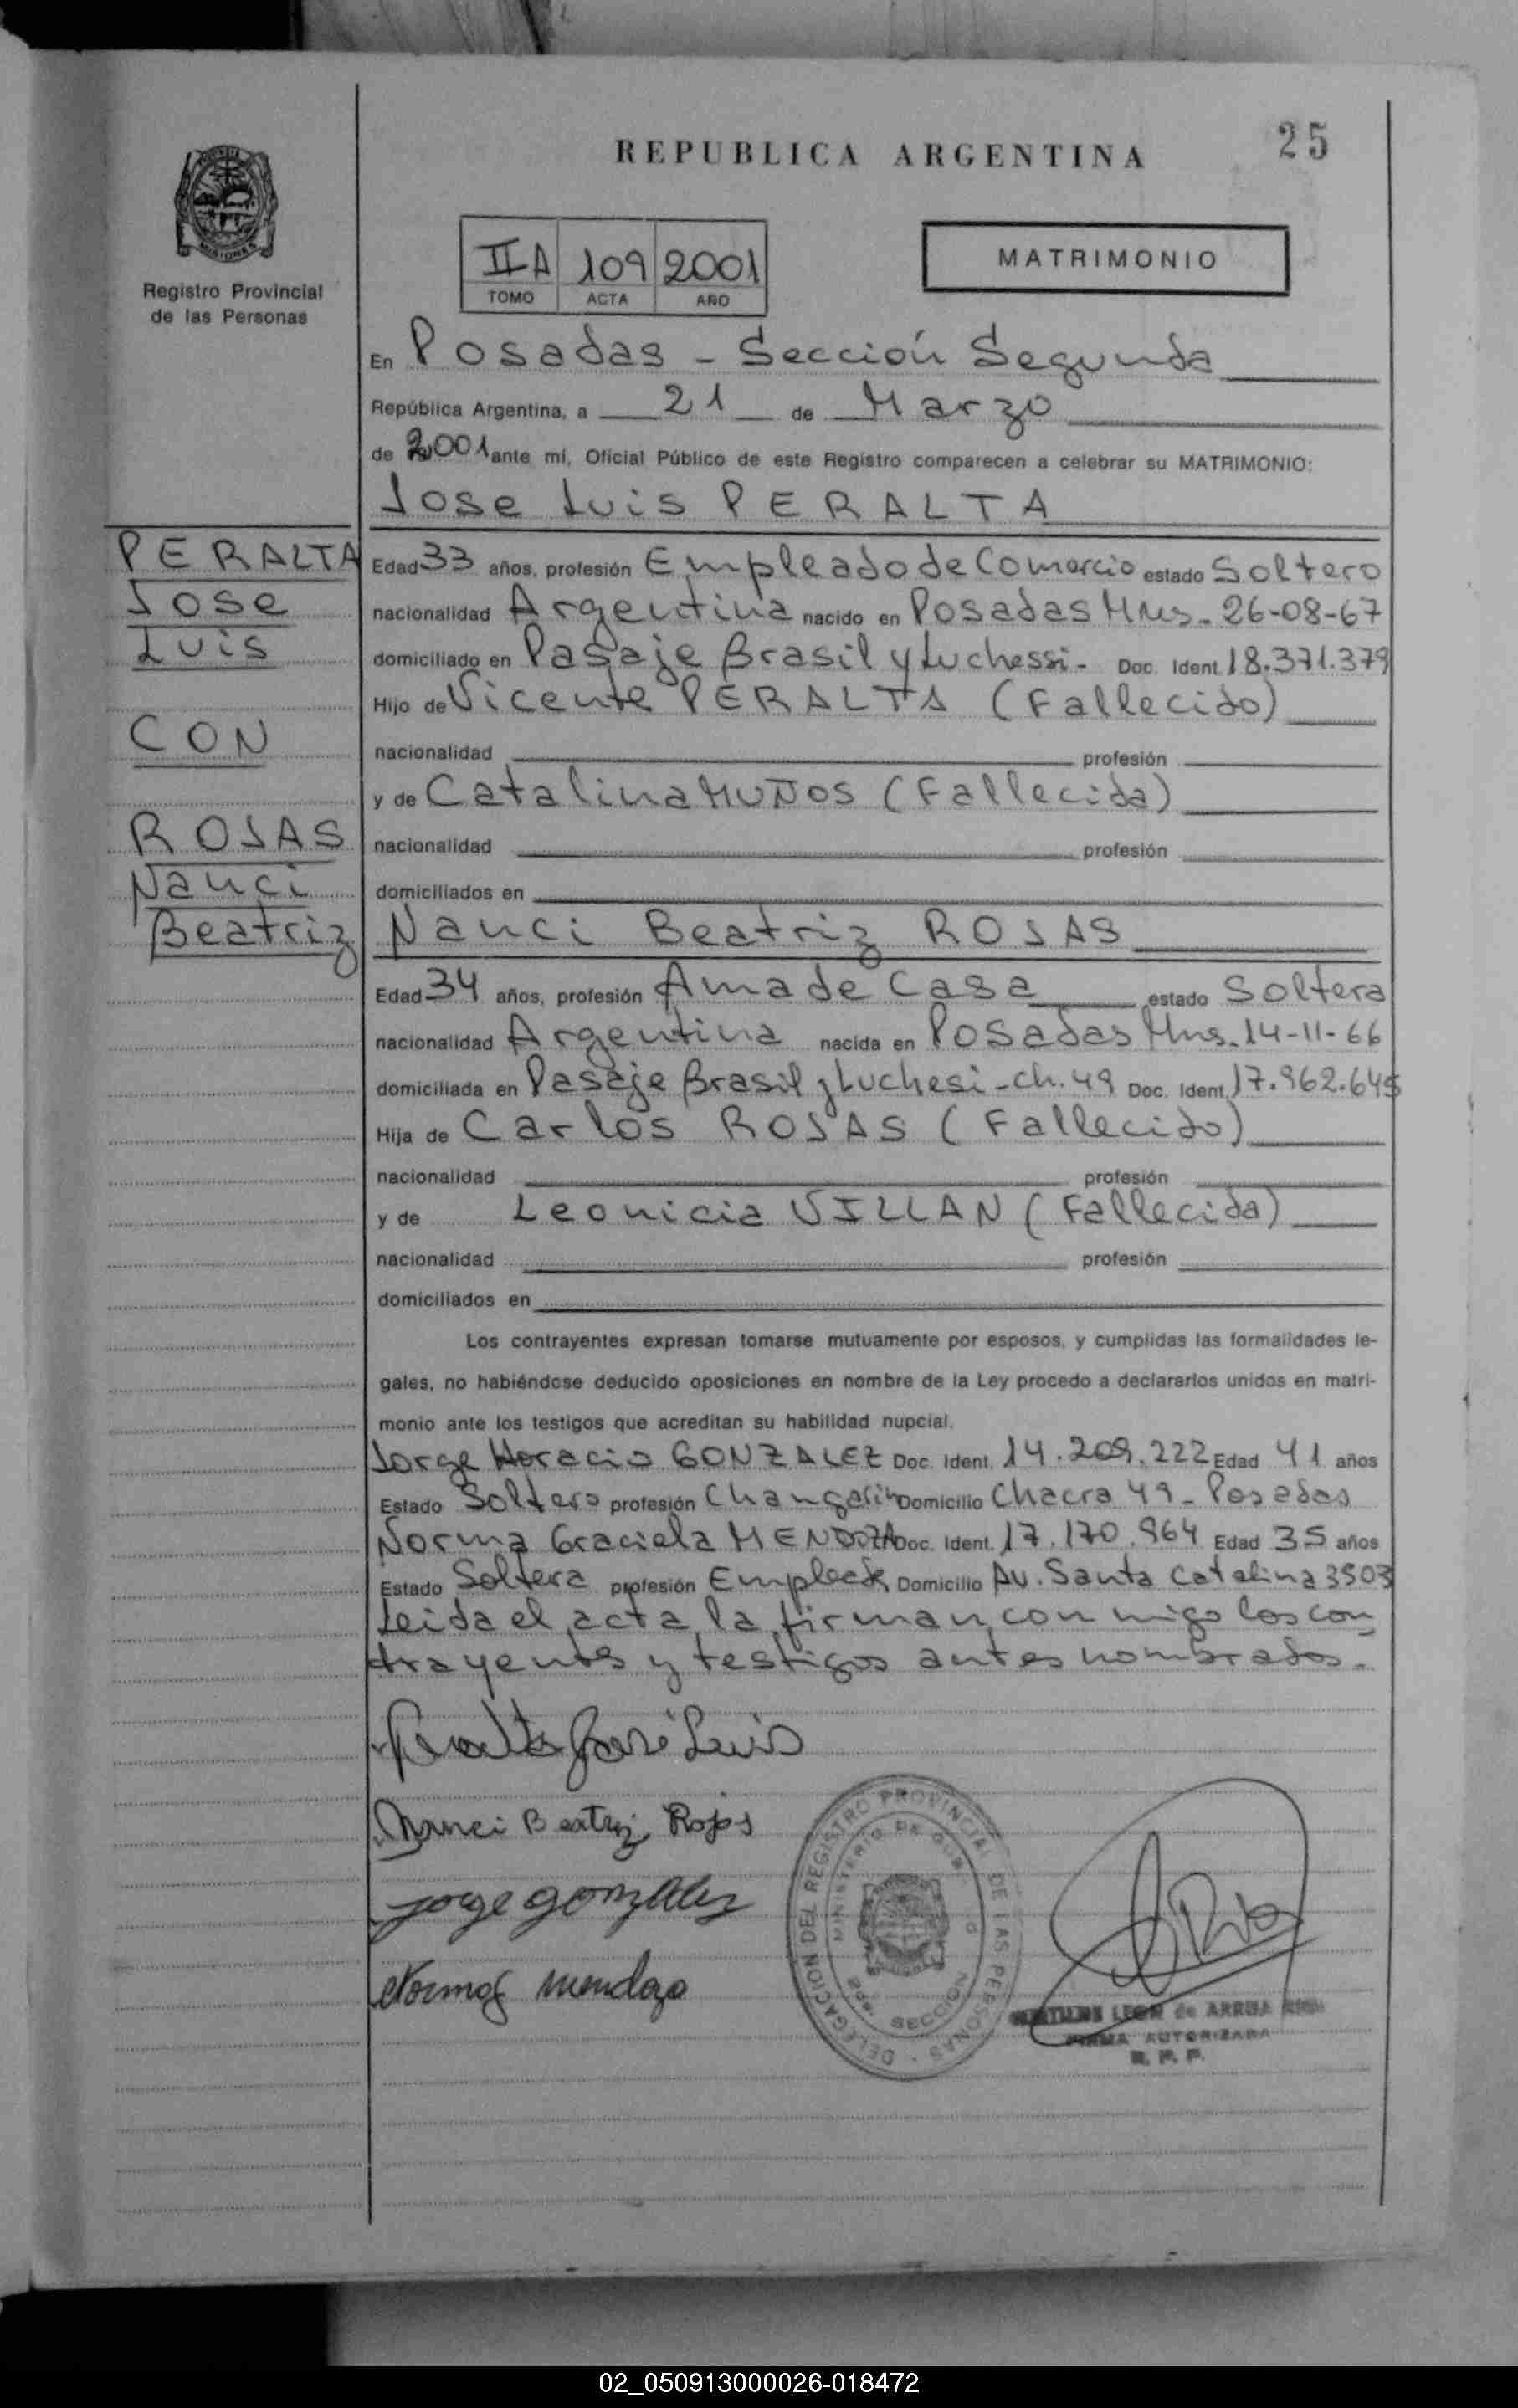 REPUBLICA ARGENTINA
25
MISIONES
Registro Provincial
de las Personas
IIA 109 2001
TOMO ACTA AÑO
MATRIMONIO
En Posadas - Sección Segunda
República Argentina, a 21 de Marzo
de 2001 ante mí, Oficial Público de este Registro comparecen a celebrar su MATRIMONIO:
Jose Luis PERALTA
PERALTA
Jose
Luis
CON
ROJAS
Nanci
Beatriz
Edad 33 años, profesión Empleado de Comercio estado Soltero
nacionalidad Argentina nacido en Posadas Mnes. 26-08-67
domiciliado en Pasaje Brasil y Luchessi - Doc. Ident. 18.371.379
Hijo de Vicente PERALTA (Fallecido)
nacionalidad profesión
y de Catalina MUÑOS (Fallecida)
nacionalidad profesión
domiciliados en
Nanci Beatriz ROJAS
Edad 34 años, profesión Ama de Casa estado Soltera
nacionalidad Argentina nacida en Posadas Mns. 14-11-66
domiciliada en Pasaje Brasil y Luchesi - Ch. 49 Doc. Ident.
Hija de Carlos ROJAS (Fallecido)
nacionalidad profesión
y de Leonicia VILLAN (Fallecida)
nacionalidad profesión
domiciliados en
Los contrayentes expresan tomarse mutuamente por esposos, y cumplidas las formalidades le-
gales, no habiéndose deducido oposiciones en nombre de la Ley procedo a declararlos unidos en matri-
monio ante los testigos que acreditan su habilidad nupcial.
Jorge Horacio GONZALEZ Doc. Ident. 14.209.222 Edad 41 años
Estado Soltero profesión Changarin Domicilio Chacra 49 - Posadas
Norma Graciela MENDOZA Doc. Ident. 17.170.964 Edad 35 años
Estado Soltera profesión Empleada Domicilio Av. Santa Catalina 3503
Leida el acta la firman con migo los con
trayentes y testigos antes nombrados.-
Peralta José Luis
Nanci Beatriz Rojas
Jorge gonzalez
Norma G Mendoza
DELEGACION DEL REGISTRO PROVINCIAL DE LAS PERSONAS
MINISTERIO DE GOB
2da. SECCION
LEON de ARRUA
FIRMA AUTORIZADA
R. P. P.
02_050913000026-018472